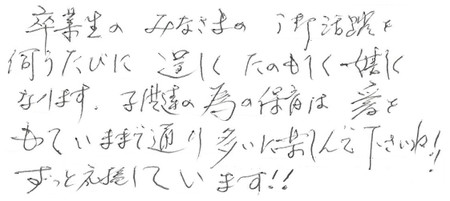 卒業生の みなさまの 御活躍を
伺うたびに 逞しく たのもしく 嬉しく
なります。子供達の為の保育は 愛を
もっていままで通り 多いに楽しんで下さいね!!
ずっと応援しています!!